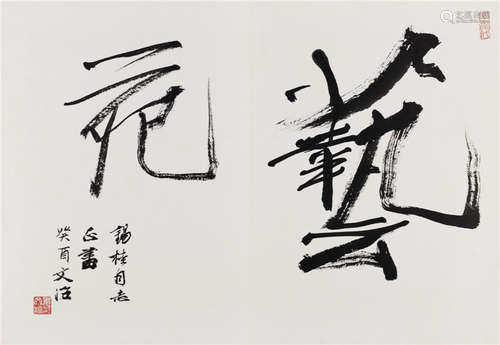 藝苑
錫桂同志
正書
癸酉文治